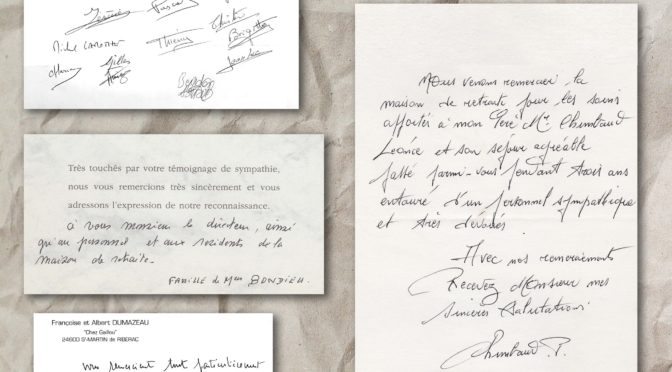 Thierry
Brigitte
Très touchés par votre témoignage de sympathie,
nous vous remercions très sincèrement et vous
adressons l'expression de notre reconnaissance.
à vous monsieur le directeur, ainsi
qu'au personnel et aux résidents de la
maison de retraite.
FAMILLE de Mme BONDIEU.
Françoise et Albert DUMAZEAU
"Chez Gaillou"
24600 ST-MARTIN de RIBERAC
vous remercient tout particulièrement
Nous venons remercier la
maison de retraite pour les soins
apportés à mon Père Mr Chimbaud
Léonce et son séjour agréable
passé parmi-vous pendant trois ans
entouré d'un personnel sympathique
et très dévoués.
Avec nos remerciements
Recevez Monsieur mes
sincères salutations
Chimbaud P.